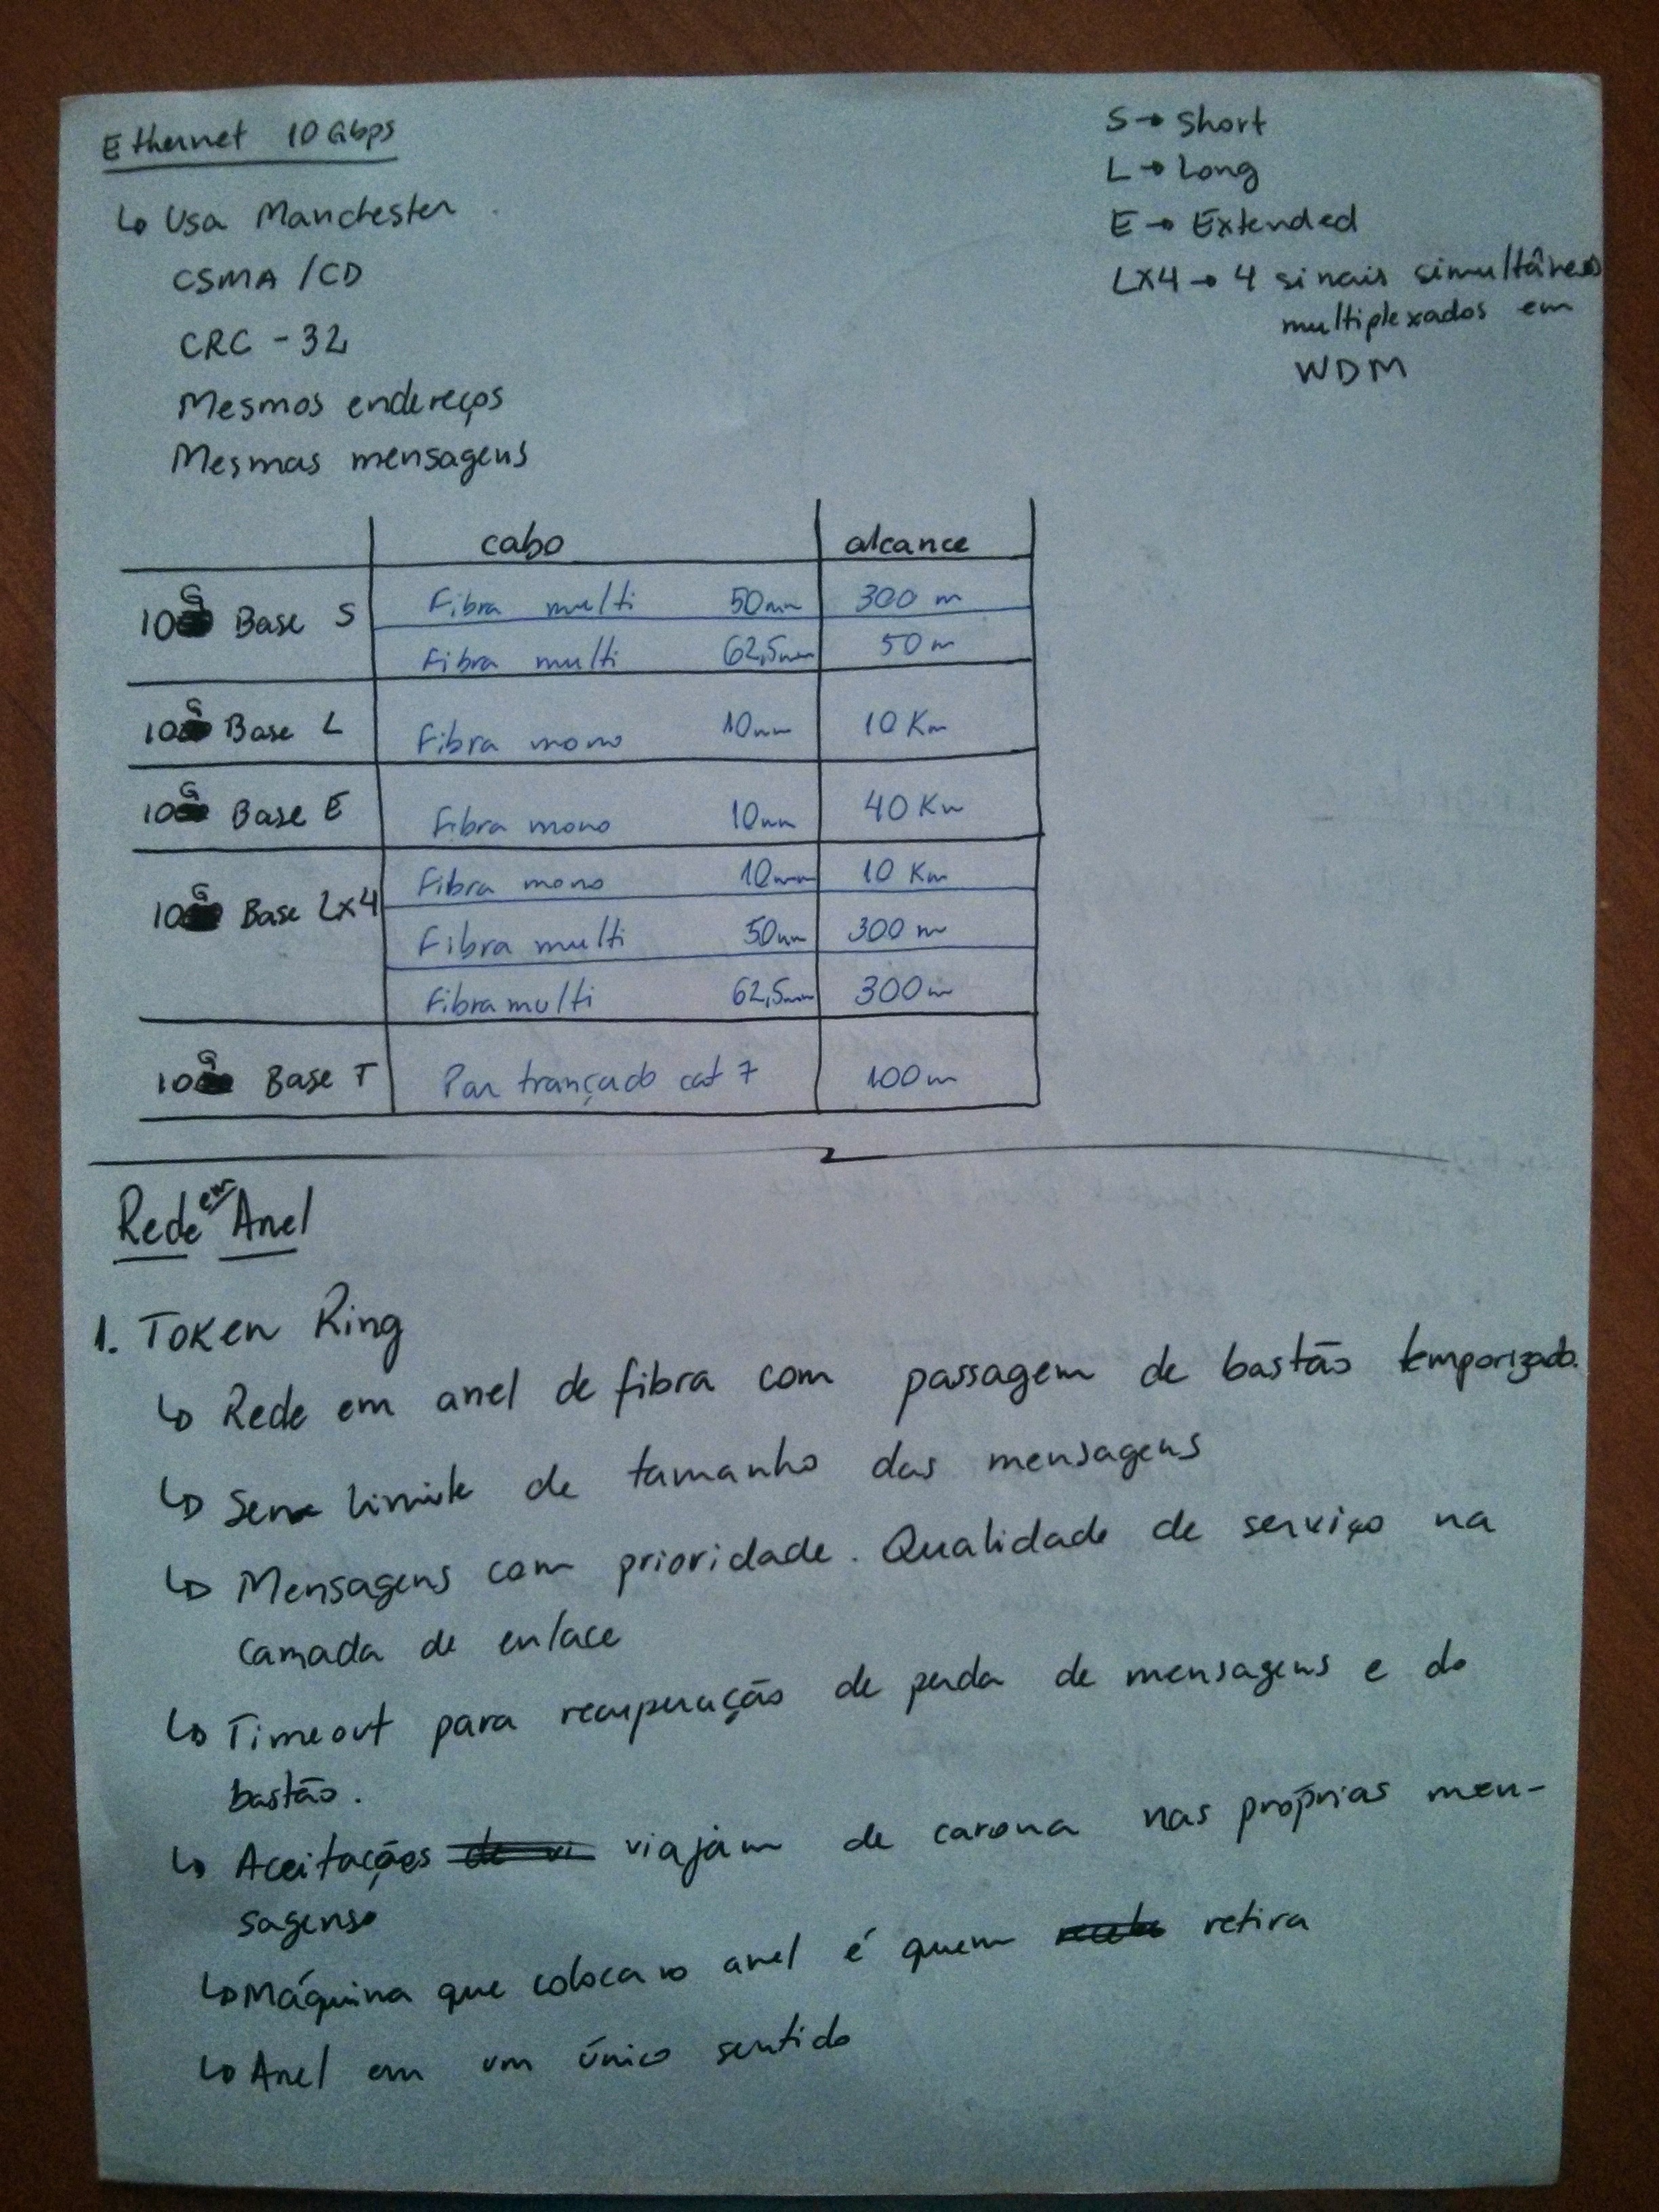 Ethernet 10Gbps
↳ Usa Manchester
CSMA/CD
CRC-32
Mesmos endereços
Mesmas mensagens
S → Short
L → Long
E → Extended
LX4 → 4 sinais simultâneos
multiplexados em
WDM
cabo alcance
10G Base S Fibra multi 50nm 300 m
Fibra multi 62,5nm 50 m
10G Base L Fibra mono 10nm 10 Km
10G Base E Fibra mono 10nm 40 Km
10G Base LX4 Fibra mono 10nm 10 Km
Fibra multi 50nm 300 m
Fibra multi 62,5nm 300m
10G Base T Par trançado cat 7 100m
Rede em Anel
1. Token Ring
↳ Rede em anel de fibra com passagem de bastão temporizado.
↳ Sem limite de tamanho das mensagens
↳ Mensagens com prioridade. Qualidade de serviço na
camada de enlace
↳ Timeout para recuperação de perda de mensagens e do
bastão.
↳ Aceitações viajam de carona nas próprias men-
sagens
↳ Máquina que coloca no anel é quem retira
↳ Anel em um único sentido